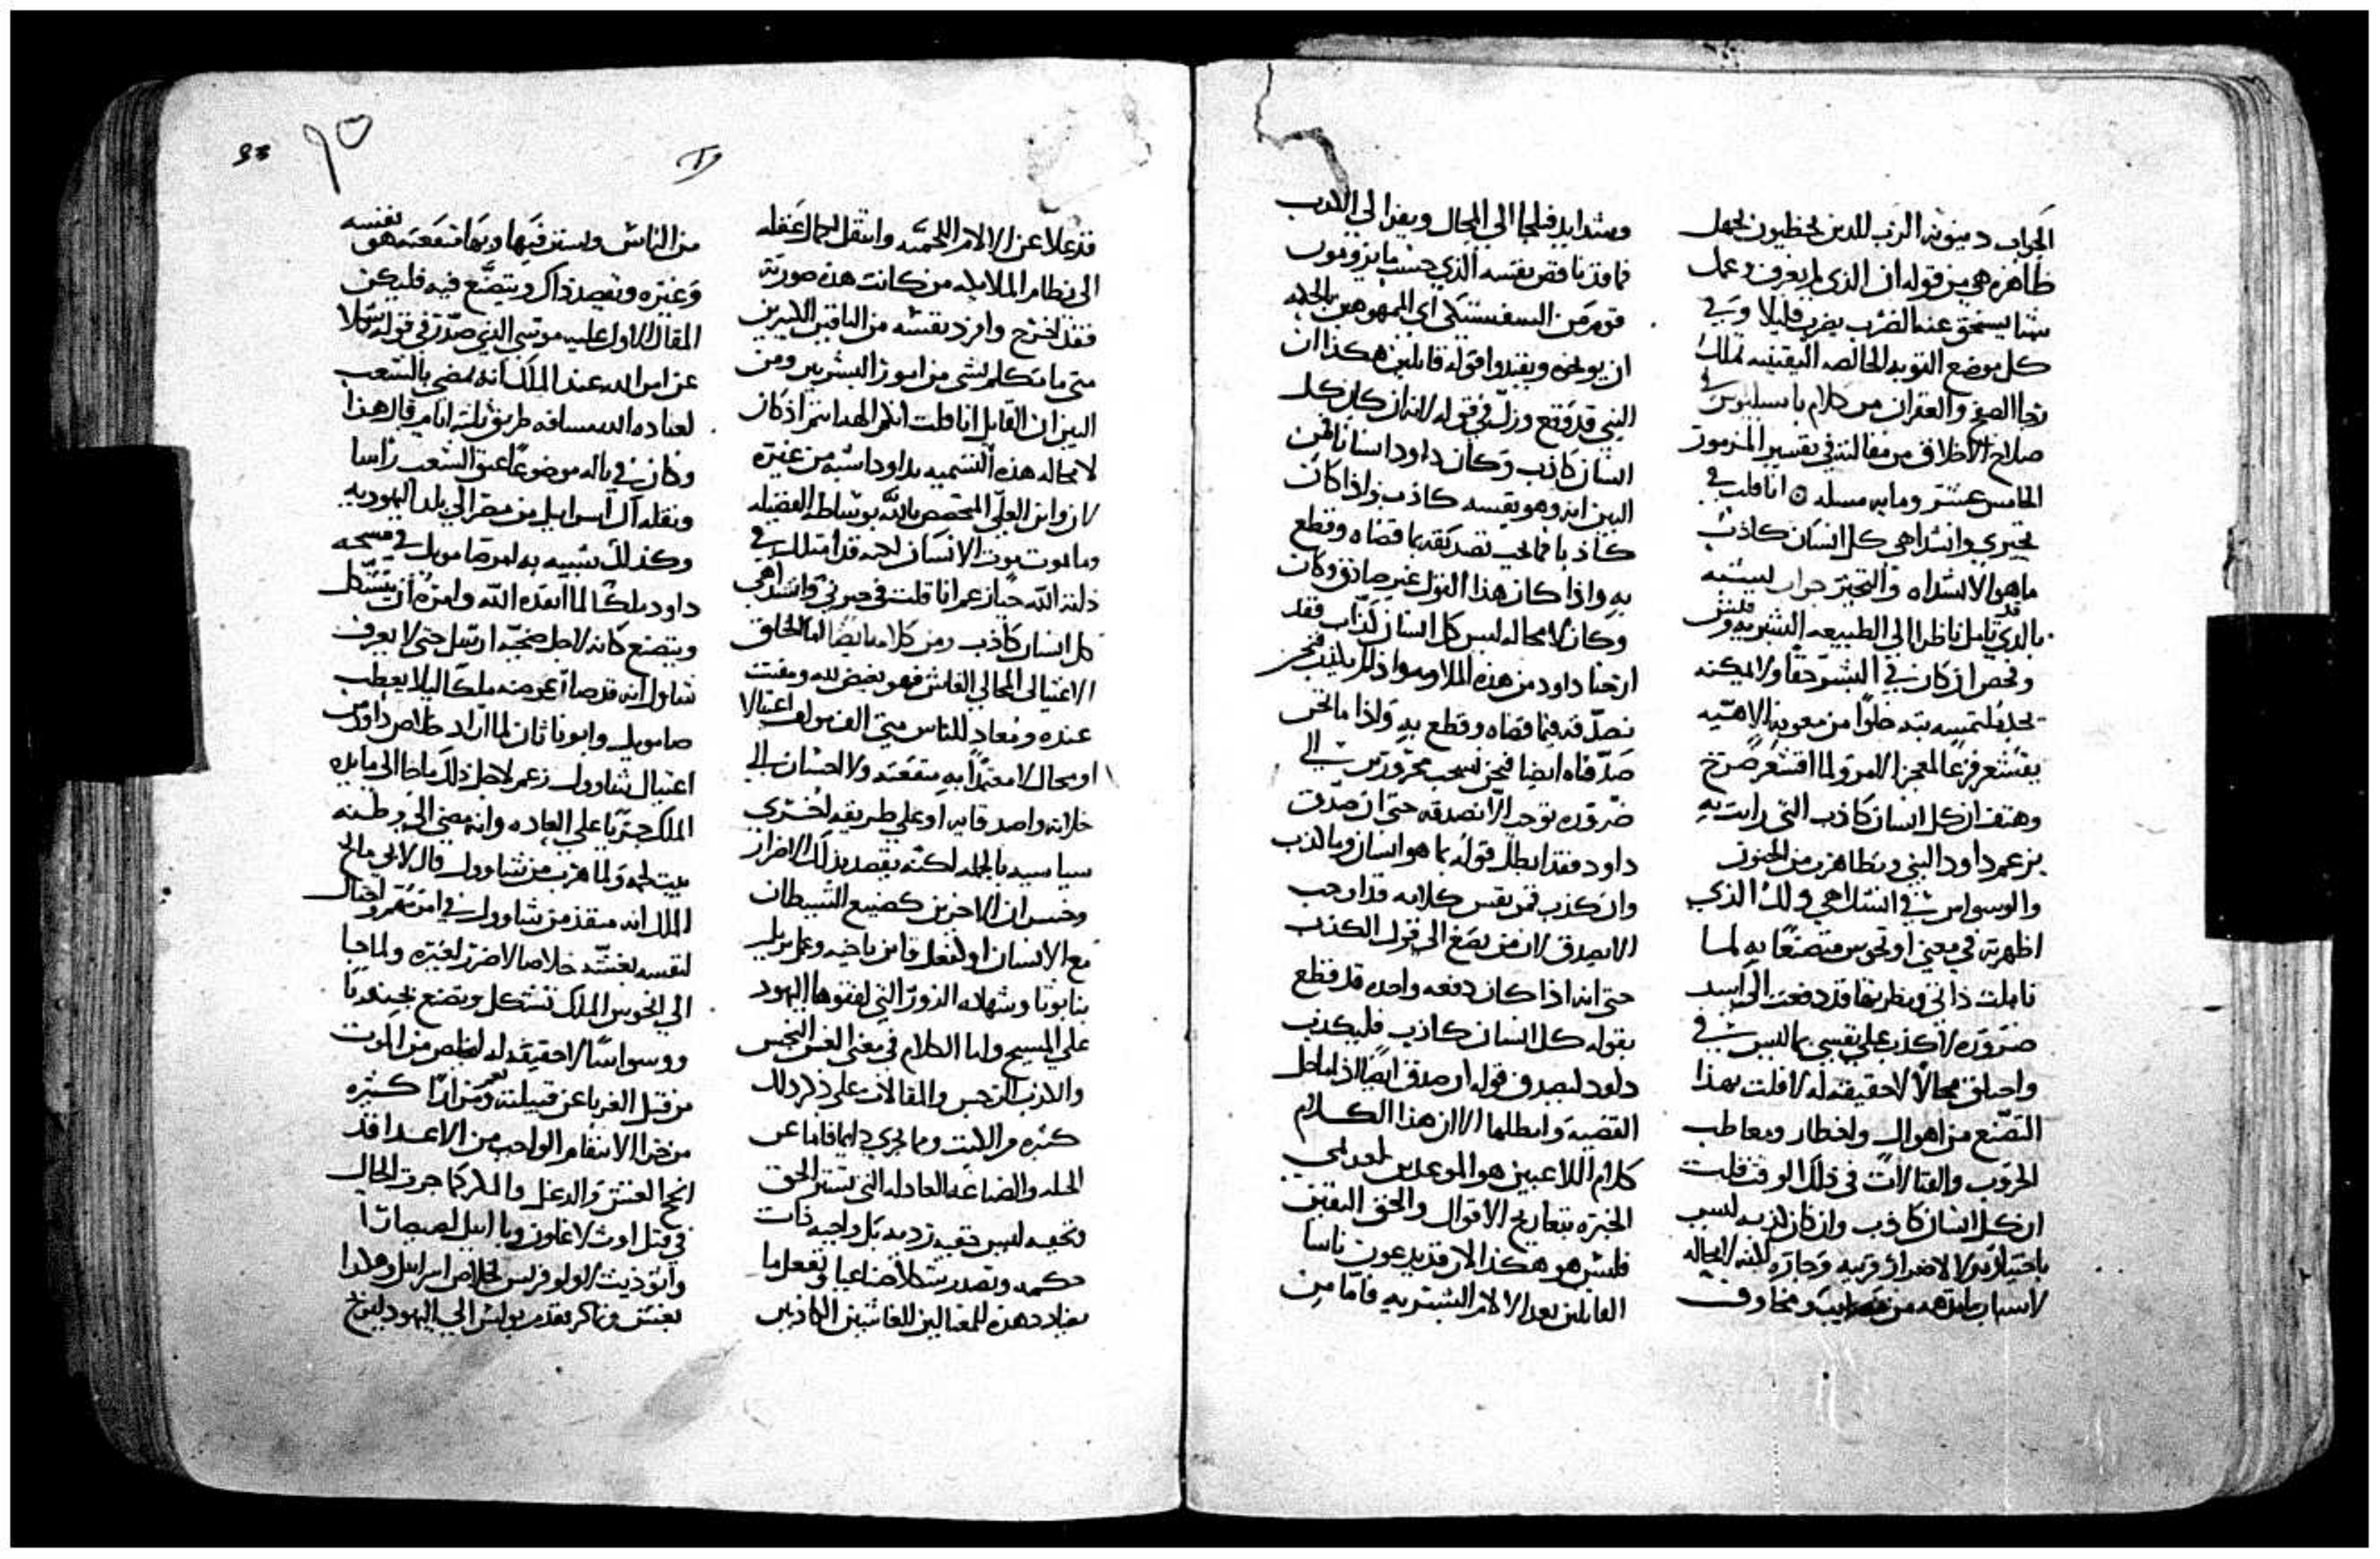 الجواب دينونه الرب للذين يخطيون بجهل
ظاهره هي من قوله ان الذي لم يعرف وعمل
شيا يستحق عنه الضرب يضرب قليلا وفي
كل موضع التوبه الخالصه اليقينيه تملك
رجا الصفح والغفران من كلام باسيليوس في
صلاح الاخلاق من مقالته في تفسير المزمور
الخامس عشر ومايه مسله انا قلت في
تحيري وانشداهي كل انسان كاذب
ماهو الانشداه والتحير جواب
بالذي تامل ناظرا الي الطبيعه البشريه
وفحص ان كان في البشر حقا ولا يمكنه
خلوا من معونه الاهيه
يقشعر فزعا المعجز الامر ولما اقشعر صرخ
وهتف ان كل انسان كاذب التي رايت به
بزعم داود النبي وتظاهر من الجنون
والوسواس في انشداهي ولك الذي
اظهرته في معني او نحوس متصنعا به لما
تاملت ذاتي ونظرتها قد دفعت الي اشد
ضروره لاكذب علي نفسي بما ليس في
واختلق محالا لا حقيقه له لا قلت بهذا
التصنع من اهوال واخطار ومعاطب
الحروب والقتالات في ذلك الوقت قلت
ان كل انسان كاذب وان كان لذبه ليس
باختياره
لاسباب من ومخاوف
وشدايد فيلجا الي المحال ويفزا الي الكدب
فاذ قد ناقض نفسه الذي حسب ما يزعمون
قوم من السفسيتكي اي المموهين بالحيله
ان يوبخوه ويفندوا قوله قايلين هكذا ان
النبي قد وقع وزل في قوله لانه ان كان كل
انسان كاذب وكان داود انسانا فمن
البين انه وهو نفسه كاذب واذا كان
كاذبا فما يجب تصديقه بما قضاه وقطع
به واذا كان هذا القول غير صادق وكان
وكان لا محاله ليس كل انسان كذاب فقد
ارحنا داود من هذه الملامه واذ لم يكذب فنحن
نصدقه فيما قضاه وقطع به واذا ما نحن
صدقناه ايضا فنحن نسحب محرورين الي
ضروره توجب الا نصدقه حتي ان صدق
داود فقد ابطل قوله بما هو انسان وبالكذب
وان كذب فمن نفس كلامه قد اوجب
الا يصدق لان من يصغ الي قول الكذب
حتي انه اذا كان دفعه واحده قد قطع
بقوله كل انسان كاذب فليكذب
داود ليصدق قوله او صدق ايضا
القضيه وابطلها الا ان هذا الكلام
كلام اللاعبين هو الموعدين لعديمي
الخبره بتعاريج الاقوال والحق اليقين
فليس هو هكذا الا انه قد يدعون ناسا
القايلين بعد الالام البشريه فاما من
قد علا عن الالام اللحميه وانتقل بكمال عقله
الي نظام الملايكه من كانت هذه صورته
فقد اخرج وافرد نفسه من الباقين الاخرين
متي ما تكلم بشي من امور البشريين ومن
البين ان القايل انا قلت انكم الهه انتم اذ كان
لا محاله هذه التسميه بداود اشبه من غيره
لانه ابن العلي المختص بالله بوساطه الفضيله
وما يموت موت الانسان لانه قد امتلك في
ذاته الله حيا نعم انا قلت في حيرتي وانشداهي
كل انسان كاذب ومن كلامه ايضا اما الخلق
الاغتيالي المحالي الغاش فهو بغيض لله ومقت
عنده ومعاد للناس متي الف مولف اغتيالا
او محال لا معتمدا به منفعه ولا احسان الي
خلانه واصدقايه او علي طريقه اخري
سياسيه بالجمله لكنه يقصد بذلك الاضرار
وخسران الاخرين كصنيع الشيطان
مع الانسان او كفعل قاين باخيه وعمل يزبل
بنابوتا وشهاده الزور التي لفقوها اليهود
علي المسيح واما الكلام في معني الغش النجس
والكذب الرجس والمقالات علي ذكر ذلك
كثيره والكتب وما يجري دايما فاما عن
الحيله والصناعه العادله التي تستر الحق
وتخفيه ليس حقيه رديه بل واجبه ذات
حكمه وتصدر شكلا صناعيا وتفعل ما
يضادد هذه للمغتالين للغاشين الكاذبين
من الناس واستر فيها وبها منفعته هو نفسه
وغيره ويقصد ذاك ويتصنع فيه فليكن
المقال الاول عليه موسي الذي صدر في قوله
عن امر الله عند الملك انه يمضي بالشعب
لعباده الله مسافه طريق ثلثه ايام قال هذا
وكان في باله موضوعا عتق الشعب راسا
ونقله آل اسراييل من مصر الي بلد اليهوديه
وكذلك شبيه به امر صامويل في مسحه
داود ملكا لما انفذه الله وامره ان يتشكل
ويتصنع كانه لاجل ضحيه ارسل حتي لا يعرف
شاول انه قد صار عوضه ملكا ليلا يعطب
صامويل وايوناثان لما اراد خلاص داود من
اغتيال شاوول زعم لاجل ذلك ما جا الي مايده
الملك جريا علي العاده وانه مضي الي وطنه
بيت لحم ولما هرب من شاوول قال لابيمالخ
الملك انه منفذ من شاوول في امر مهم واحتال
لنفسه بغشه خلاصا لا ضرر لغيره ولما جا
الي انخوس الملك تشكل وتصنع بجنونا
ووسواسا لا حقيقه له ليخلص من الموت
من قتل الغربا عن قبيلته نعم ومرارا كثيره
من جرا الانتقام الواجب من الاعدا قد
انجح الغش والدغل والمكر كما جرت الحال
في قتل اوث لاغلون ويا اييل لصيصارا
وايوذيث لاولوفرنس لخلاص اسراييل وهكذا
بغش ومكر تقدم بولس الي اليهود ليربح